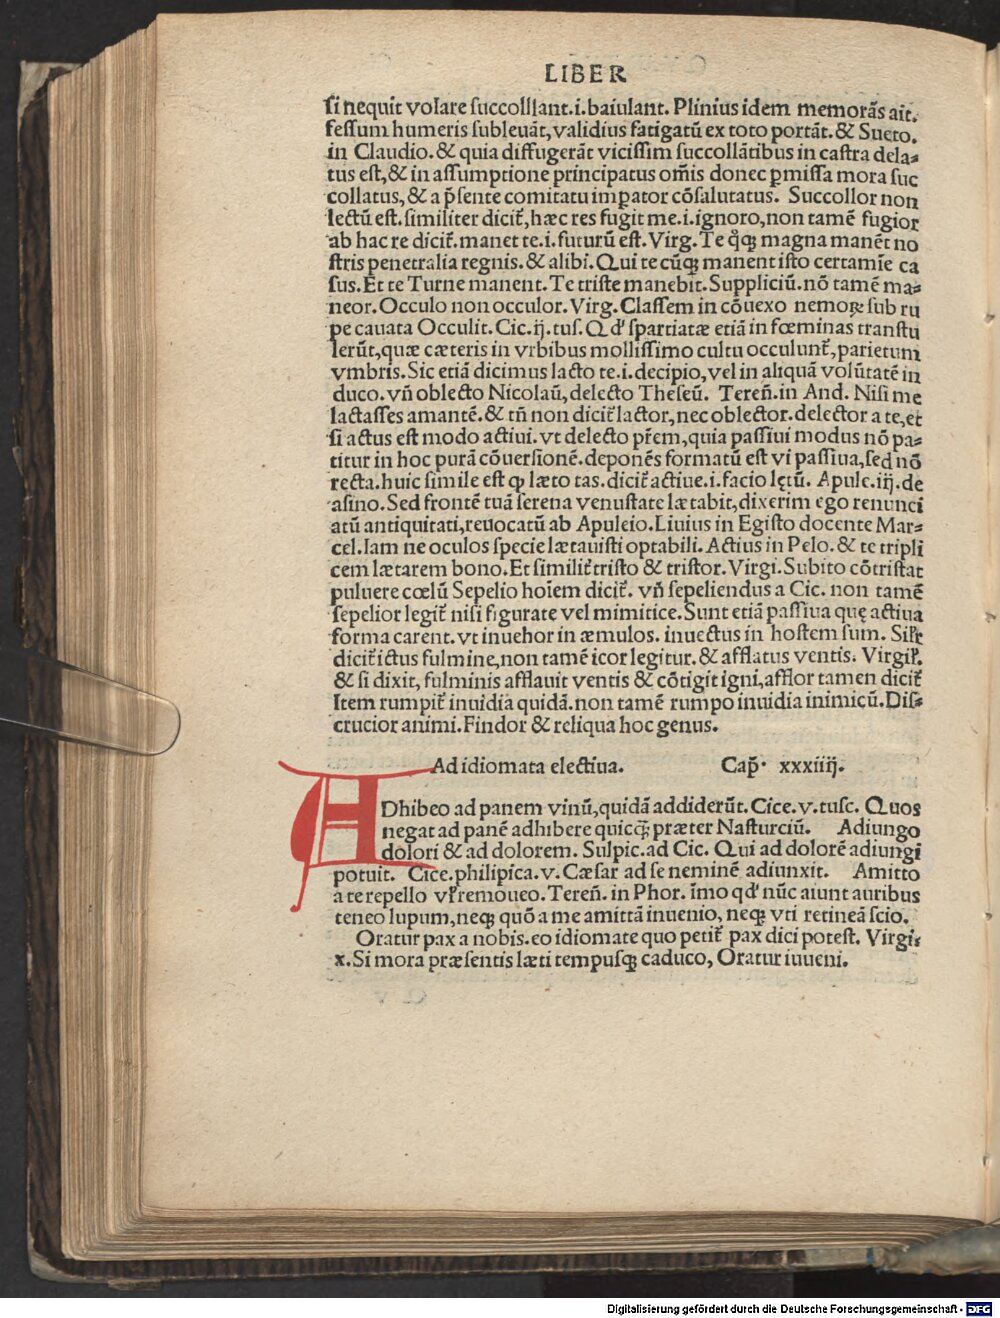 LIBER
si nequit volare succollant.i.baiulant. Plinius idem memorãs ait.
fessum humeris subleuãt,validius fatigatũ ex toto portãt.& Sueto.
in Claudio.& quia diffugerãt vicissim succollãtibus in castra dela⸗
tus est,& in assumptione principatus om̃is donec ꝑmissa mora suc
collatus,& a p̃sente comitatu imꝑator cõsalutatus. Succollor non
lectũ est.similiter dicit᷑,hæc res fugit me.i.ignoro,non tamẽ fugior
ab hac re dicit᷑.manet te.i.futurũ est.Virg.Te q̊ꝗ magna manẽt no
stris penetralia regnis.& alibi.Qui te cũꝗ manent isto certamĩe ca
sus.Et te Turne manent.Te triste manebit.Suppliciũ.nõ tamẽ ma⸗
neor.Occulo non occulor.Virg.Classem in cõuexo nemoꝝ sub ru
pe cauata Occulit.Cic.ij.tus.Qd' spartiatæ etiã in fœminas transtu
lerũt,quæ cæteris in vrbibus mollissimo cultu occulunt᷑,parietum
vmbris.Sic etiã dicimus lacto te.i.decipio,vel in aliquã volũtatẽ in
duco.vñ oblecto Nicolaũ,delecto Theseũ. Tereñ.in And. Nisi me
lactasses amantẽ.& tñ non dicit᷑ lactor,nec oblector.delector a te,et
si actus est modo actiui.vt delecto pr̃em,quia passiui modus nõ pa⸗
titur in hoc purã cõuersionẽ.deponẽs formatũ est vi passiua,sed nõ
recta.huic simile est ꝙ læto tas.dicit᷑ actiue.i.facio lętũ. Apule.iij.de
asino.Sed frontẽ tuã serena venustate lætabit,dixerim ego renunci
atũ antiquitati,reuocatũ ab Apuleio.Liuius in Egisto docente Mar⸗
cel.Iam ne oculos specie lætauisti optabili.Actius in Pelo.& te tripli
cem lætarem bono.Et similit᷑ tristo & tristor.Virgi.Subito cõtristat
puluere cœlũ Sepelio hoĩem dicit᷑. vñ sepeliendus a Cic. non tamẽ
sepelior legit᷑ nisi figurate vel mimitice.Sunt etiã passiua quę actiua
forma carent.vt inuehor in æmulos. inuectus in hostem sum. Sil̃r
dicit᷑ ictus fulmine,non tamẽ icor legitur.& afflatus ventis. Virgil̃.
& si dixit, fulminis afflauit ventis & cõtigit igni,afflor tamen dicit᷑
Item rumpit᷑ inuidia quidã.non tamẽ rumpo inuidia inimicũ.Dis⸗
crucior animi.Findor & reliqua hoc genus.
Ad idiomata electiua. Cap̃. xxxiiij.
ADhibeo ad panem vinũ,quidã addiderũt.Cice.v.tusc. Quos
negat ad panẽ adhibere quicꝗ̃ præter Nasturciũ. Adiungo
dolori & ad dolorem. Sulpic.ad Cic. Qui ad dolorẽ adiungi
potuit. Cice.philipica.v.Cæsar ad se neminẽ adiunxit. Amitto
a te repello vl̃ remoueo.Tereñ. in Phor. ĩmo qd' nũc aiunt auribus
teneo lupum,neꝗ quõ a me amittã inuenio, neꝗ vti retineã scio.
Oratur pax a nobis.eo idiomate quo petit᷑ pax dici potest. Virgi.
x.Si mora præsentis læti tempusꝗ caduco, Oratur iuueni.
Digitalisierung gefördert durch die Deutsche Forschungsgemeinschaft - DFG